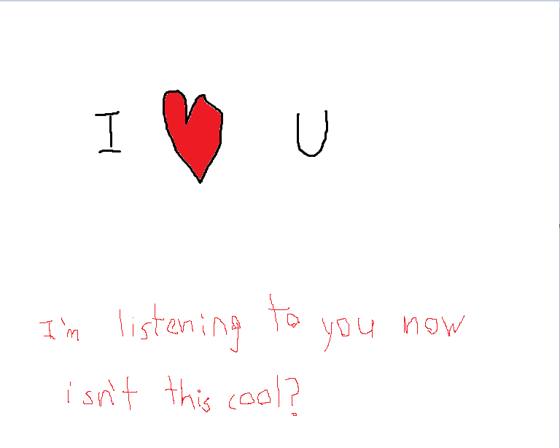 I ❤ U
I'm listening to you now
isn't this cool?